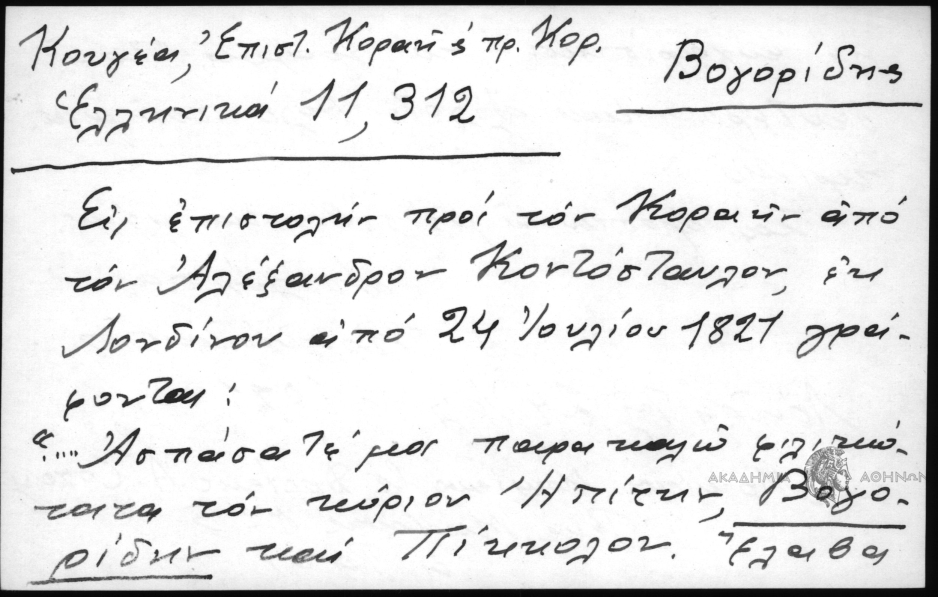 Κουγέα, Ἐπιστ. Κοραῆ & πρ. Κορ.
Βογορίδης
Ἑλληνικά 11, 312
Εἰς ἐπιστολήν πρός τόν Κοραῆν ἀπό
τόν Ἀλέξανδρον Κοντόσταυλον, ἐκ
Λονδίνου ἀπό 24 Ἰουλίου 1821 γρά-
φονται:
"... Ἀσπάσατέ μοι παρακαλῶ φιλικώ-
τατα τόν κύριον Ἠπίτην, Βογο-
ρίδην καί Πίκκολον. Ἔλαβα
ΑΚΑΔΗΜΙΑ ΑΘΗΝΩΝ